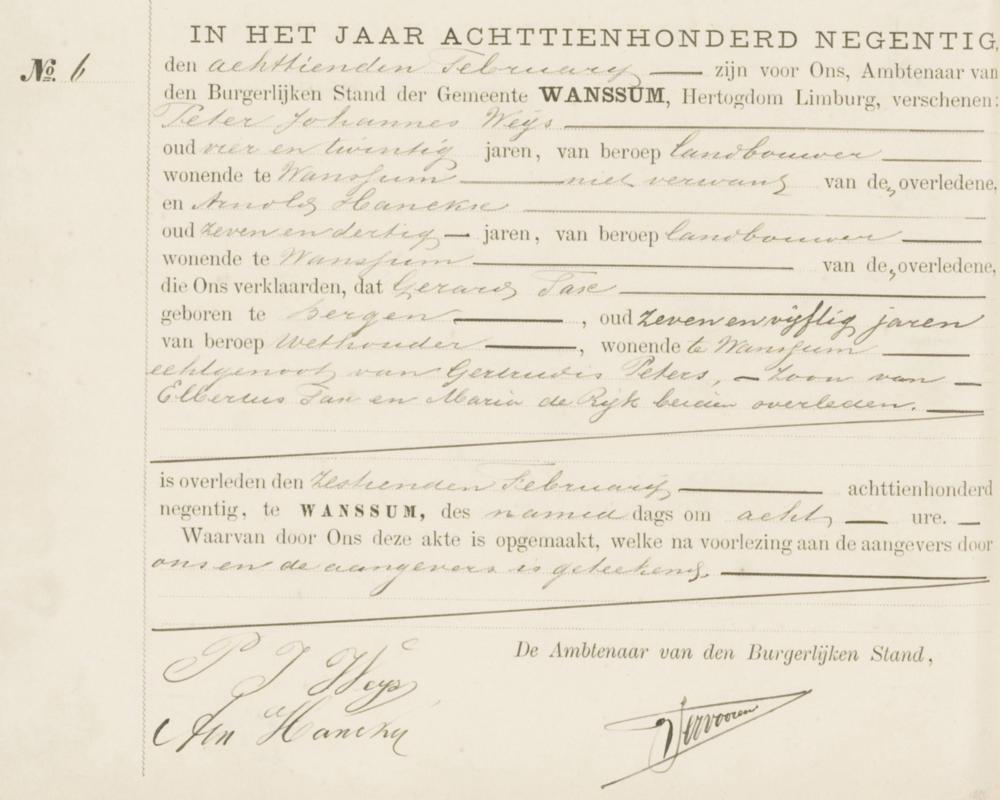 IN HET JAAR ACHTTIENHONDERD NEGENTIG,
No. 6
den achttienden Februarij — zijn voor Ons, Ambtenaar van
den Burgerlijken Stand der Gemeente WANSSUM, Hertogdom Limburg, verschenen:
Peter Johannes Weijs
oud vier en twintig jaren, van beroep landbouwer
wonende te Wanssum niet verwant van de overledene,
en Arnold Hanckse
oud zeven en dertig — jaren, van beroep landbouwer
wonende te Wanssum van de overledene,
die Ons verklaarden, dat Gerard Fax
geboren te Bergen, oud zeven en vijftig jaren
van beroep Wethouder, wonende te Wanssum
echtgenoot van Gertrudis Peters, — zoon van —
Elbertus Fax en Maria de Rijk beiden overleden.
is overleden den zestienden Februarij achttienhonderd
negentig, te WANSSUM, des namid dags om acht — ure. —
Waarvan door Ons deze akte is opgemaakt, welke na voorlezing aan de aangevers door
ons en de aangevers is geteekend.
De Ambtenaar van den Burgerlijken Stand,
P J Weijs
Arn
Vervooren